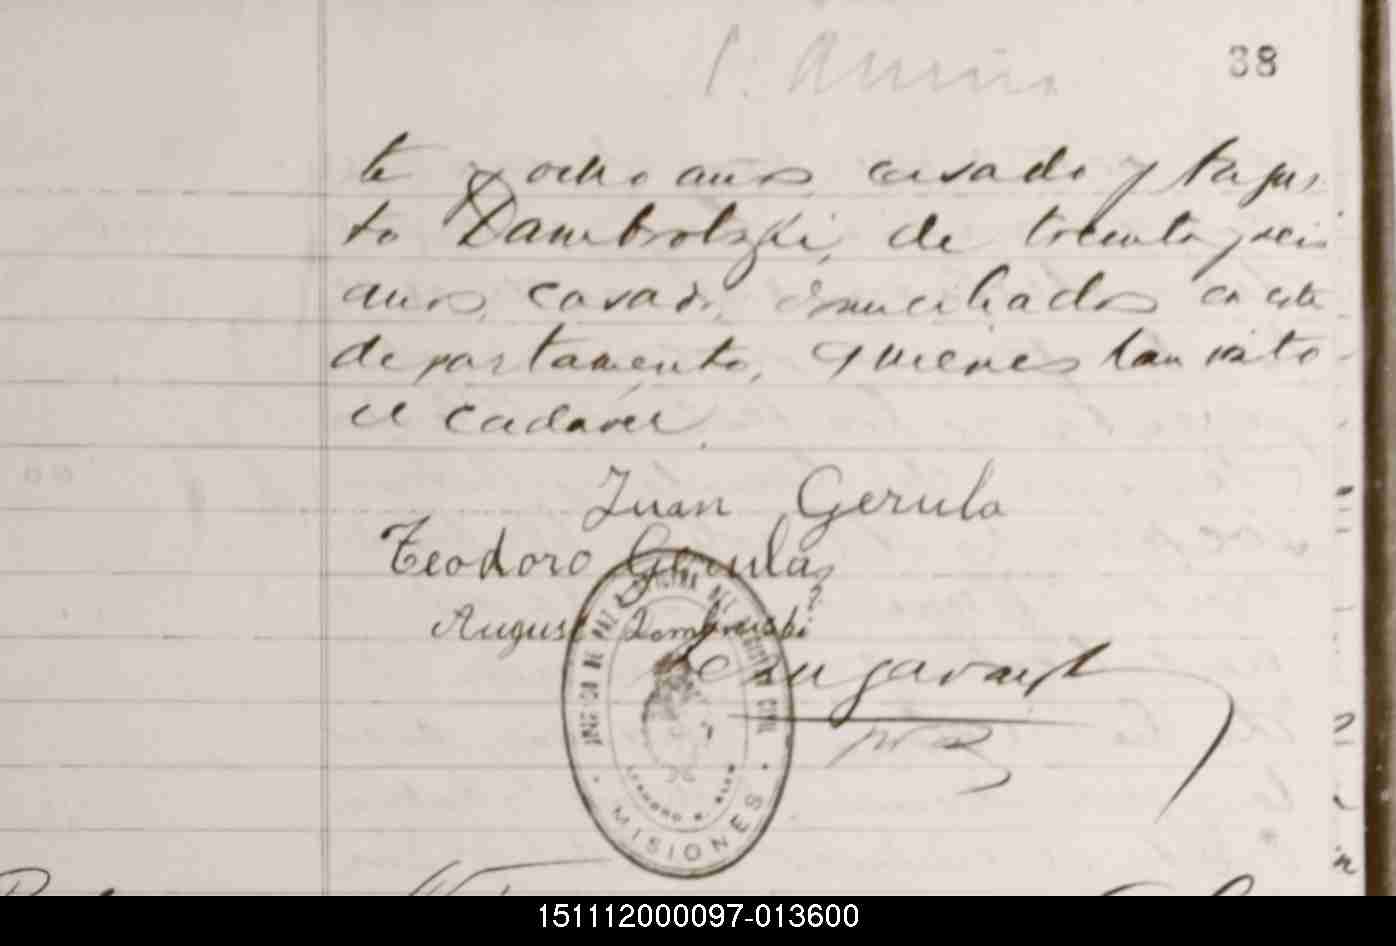 38
te y ocho años, casado y Augus-
to Dambrotzki, de treinta y seis
años, casado, domiciliados en este
departamento, quienes han visto
el cadaver.
Juan Gerula
Teodoro Gerula
August
JUZGADO DE PAZ Y OFICINA DEL REGISTRO CIVIL
LEANDRO N. ALEM
MISIONES
151112000097-013600